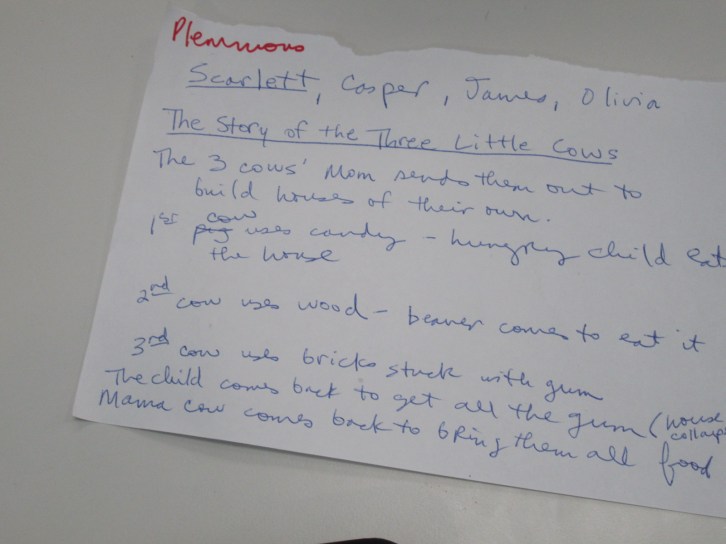 Plemmons
Scarlett, Casper, James, Olivia
The Story of the Three Little Cows
The 3 cows' Mom sends them out to
build houses of their own.
cow
1st pig uses candy - hungry child eat
the house
2nd cow uses wood - beaver comes to eat it
3rd cow uses bricks stuck with gum
The child comes back to get all the gum (house
collaps
Mama cow comes back to bring them all food